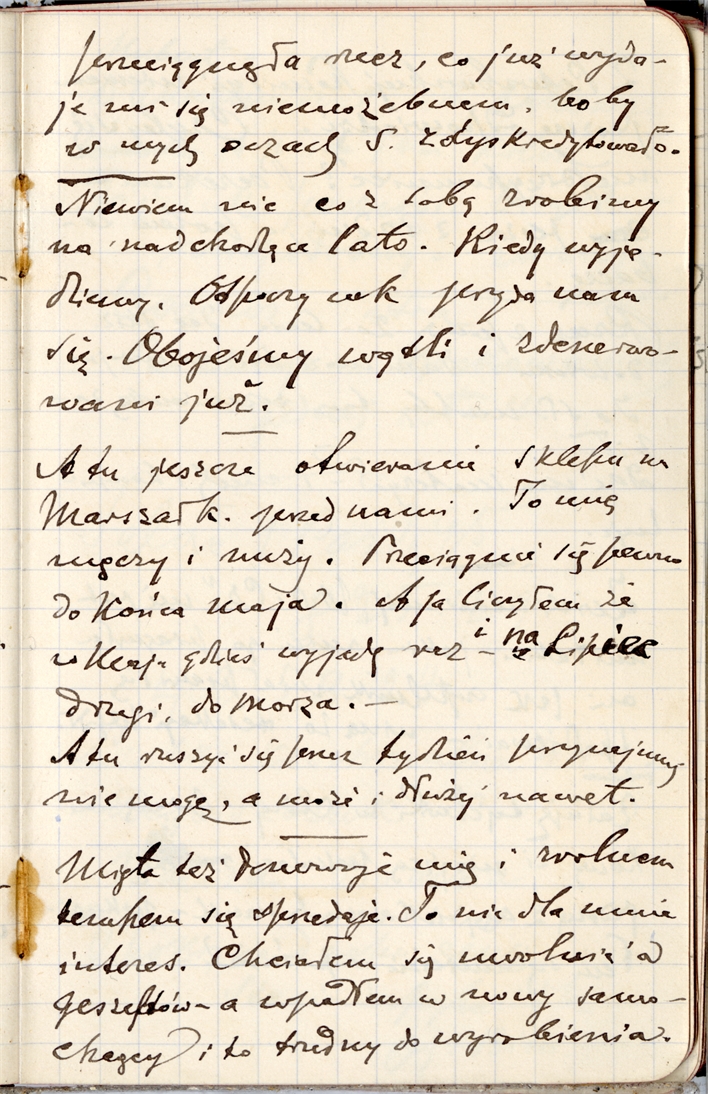 przeciągnęła rzecz, co już wyda-
je mi się niemożebnem, bo by
w mych oczach S. zdyskredytowało.
Niewiem nic co z sobą zrobimy
na nadchodzące lato. Kiedy wyje-
dziemy. Odpoczynek przyda nam
się. Obojeśmy wątli i zdenerwo-
wani już.
A tu jeszcze otwieranie sklepu na
Marszałk. przed nami. To mię
męczy i nuży. Przeciągnie się pewno
do końca maja. A ja liczyłem że
w Maju gdzieś wyjadę raz i na Lipiec
drugi, do morza. —
A tu ruszyć się przez tydzień przynajmniej
nie mogę, a może i dłużej nawet.
Mięta też denerwuje mię i wolnem
tempem się sprzedaje. To nie dla mnie
interes. Chciałem się uwolnić od
geszeftów - a wpadłem w nowy samo-
chcący i to trudny do wyrobienia.